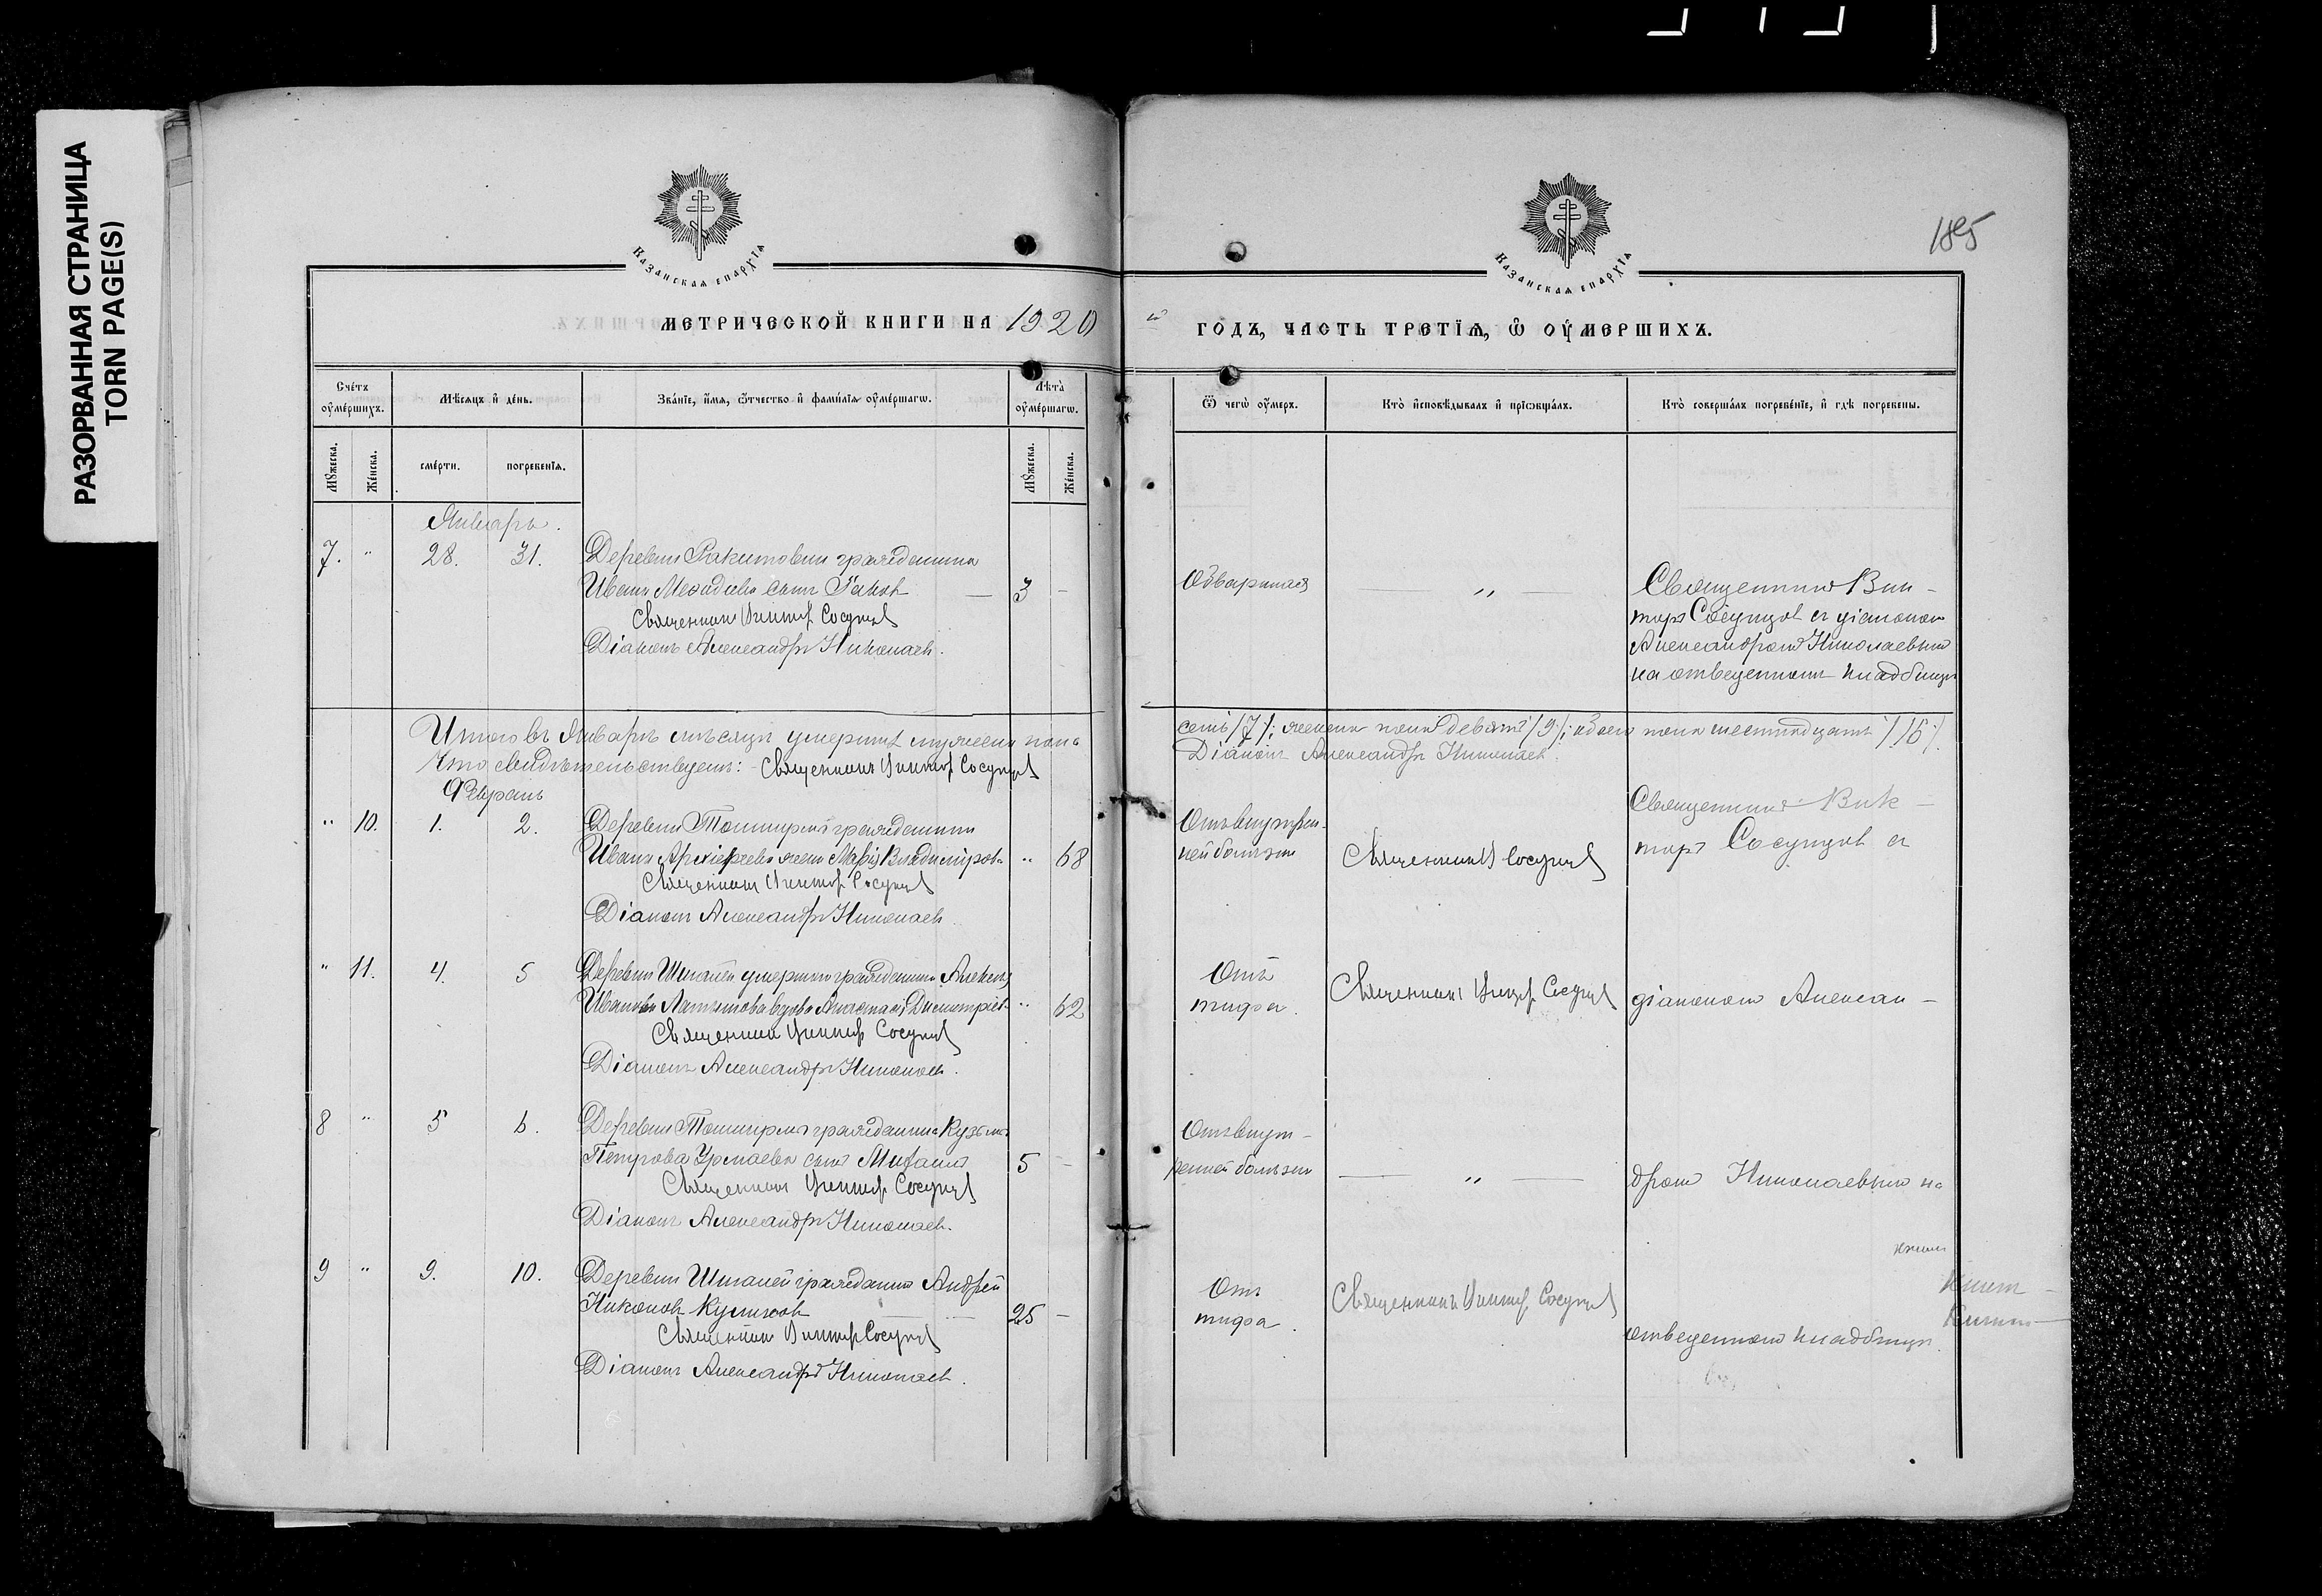 РАЗОРВАННАЯ СТРАНИЦА
TORN PAGE(S)
185
Казанская епархїѧ
Казанская епархїѧ
МЕТРИЧЕСКОЙ КНИГИ НА 1920 й
ГОДЪ, ЧАСТЬ ТРЕТЇѦ, Ѿ ОУМЕРШИХЪ.
Счетъ оумершихъ.
Мѣсяцъ и день.
Званїе, имя, отчество и фамилїя оумершагѡ.
Лѣта оумершагѡ.
Ѿ чегѡ оумеръ.
Кто исповѣдывалъ и прїѡбщалъ.
Кто совершалъ погребенїе, и гдѣ погребены.
Мꙋжеска.
Женска.
смерти.
погребенїя.
Мꙋжеска.
Женска.
Январь.
7. " 28. 31. Деревни Ракитовки гражданина
Ивана Меѳодіева сынъ Іаковъ — 3 — Обварился — " — Священникъ Вик-
Священникъ Викторъ Сосунцовъ
торъ Сосунцовъ съ діакономъ
Діаконъ Александръ Николаевъ.
Александромъ Николаевымъ
на отведенномъ кладбищѣ
Итого въ Январѣ мѣсяцѣ умершихъ мужеска пола
семь /7/; женска пола девять /9/; обоего пола шестнадцать /16/.
Что свидѣтельствуемъ: Священникъ Викторъ Сосунцовъ
Діаконъ Александръ Николаевъ.
Февраль
" 10. 1. 2. Деревни гражданина
Ивана жена Марія Владимірова " 68
Отъ внутрен-
ней болѣзни
Священникъ В Сосунцовъ
Священникъ Вик-
торъ Сосунцовъ съ
Священникъ Викторъ Сосунцовъ
Діаконъ Александръ Николаевъ
" 11. 4. 5 Деревни умершаго гражданина Алексѣя
Иванова вдова Анастасія Димитріев. " 62
Отъ
тифа.
Священникъ Викторъ Сосунцовъ
діакономъ Алексан-
Священникъ Викторъ Сосунцовъ
Діаконъ Александръ Николаевъ.
8 " 5 6. Деревни гражданина Кузьмы
Петрова Урмаева сынъ Михаилъ 5 —
Отъ внут-
ренней болѣзни
— " —
дромъ Николаевымъ на
Священникъ Викторъ Сосунцовъ
Діаконъ Александръ Николаевъ.
9 " 9. 10. Деревни гражданинъ Андрей
Никоновъ 25 —
Отъ
тифа.
Священникъ Викторъ Сосунцовъ
отведенномъ кладбищѣ.
Священникъ Викторъ Сосунцовъ
Діаконъ Александръ Николаевъ.